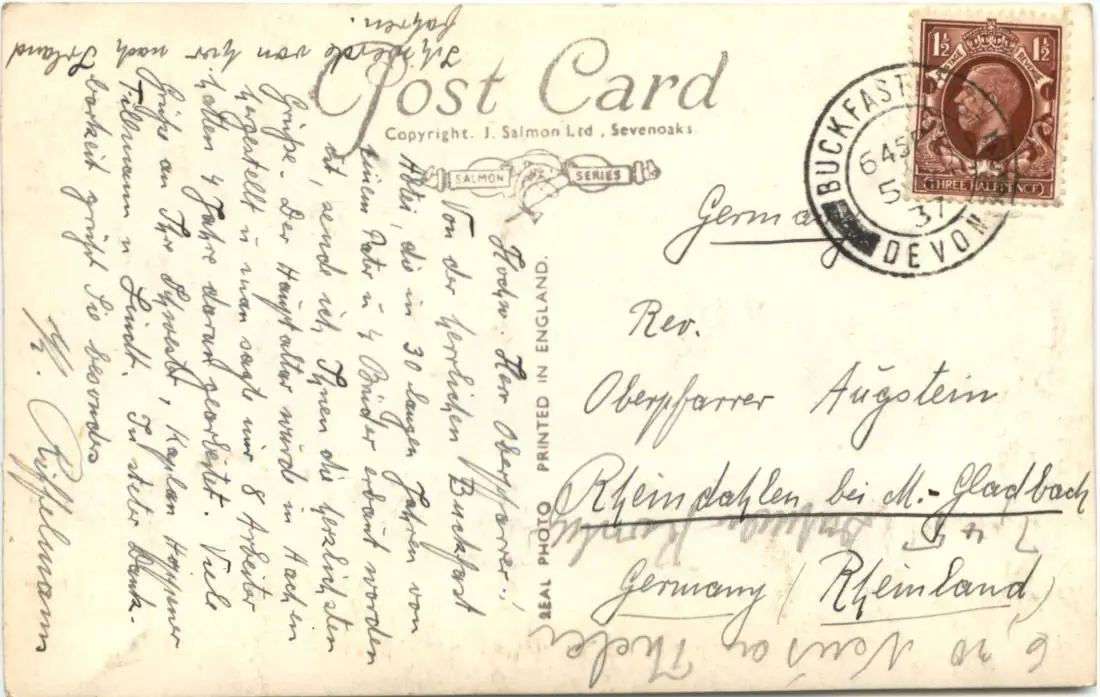 Post Card
Copyright. J. Salmon Ltd, Sevenoaks.
SALMON SERIES
REAL PHOTO PRINTED IN ENGLAND.
1½ 1½
POSTAGE REVENUE
THREE HALFPENCE
BUCKFASTLEIGH
5 37
DEVON
Hochw. Herr Oberpfarrer!
Von der herrlichen Buckfast
Abtei, die in 30 langen Jahren von
einem Pater u 4 Brüder erbaut worden
ist, sende ich Ihnen die herzlichsten
Grüße. Der Hauptaltar wurde in Aachen
hergestellt u man sagte mir 8 Arbeiter
hätten 4 Jahre daran gearbeitet. Viele
Grüße an Ihre Schwester, Kaplan Hoppener
Tillmann u Lindt. In steter Dank-
barkeit grüßt Sie besonders
Riffelmann
Ich werde von hier nach Irland
fahren.
Germany
Rev.
Oberpfarrer Augstein
Rheindahlen bei M.-Gladbach
Germany (Rheinland)